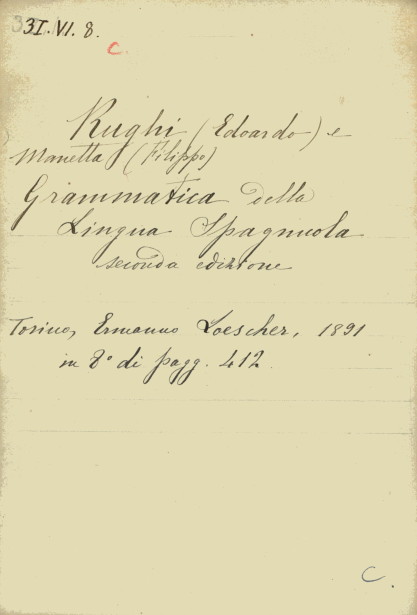 31.VI.8.
C.
Rughi (Edoardo) e
Manetta (Filippo)
Grammatica della
Lingua Spagnuola
seconda edizione
Torino, Ermanno Loescher, 1891
in 8° di pagg. 412.
C.